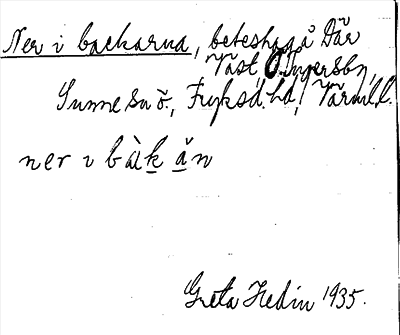 Ner i backarna, beteshage å Där
Väst, Ö. Ingersby,
Sunne sn ö., Fryksd. hd, Värml. l.
ner i bàk ăn
Greta Hedin 1935.